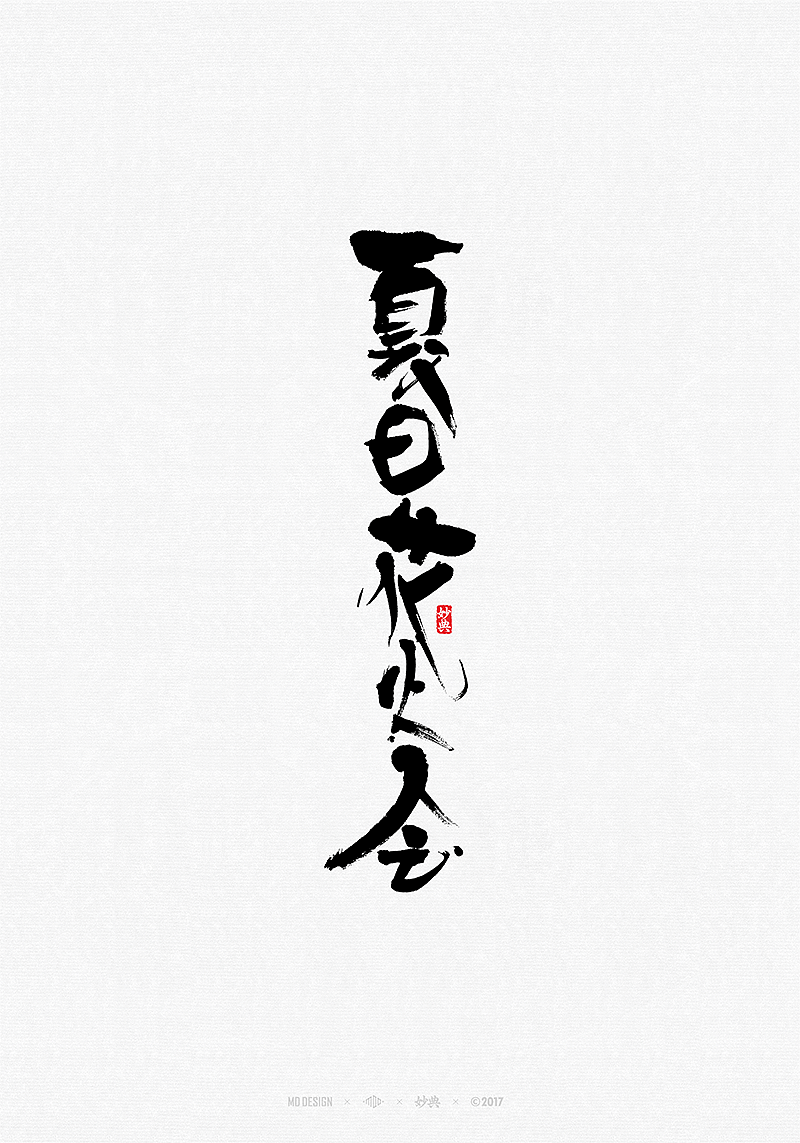 夏日花火会
妙典
MD DESIGN × MD × 妙典 × ©2017